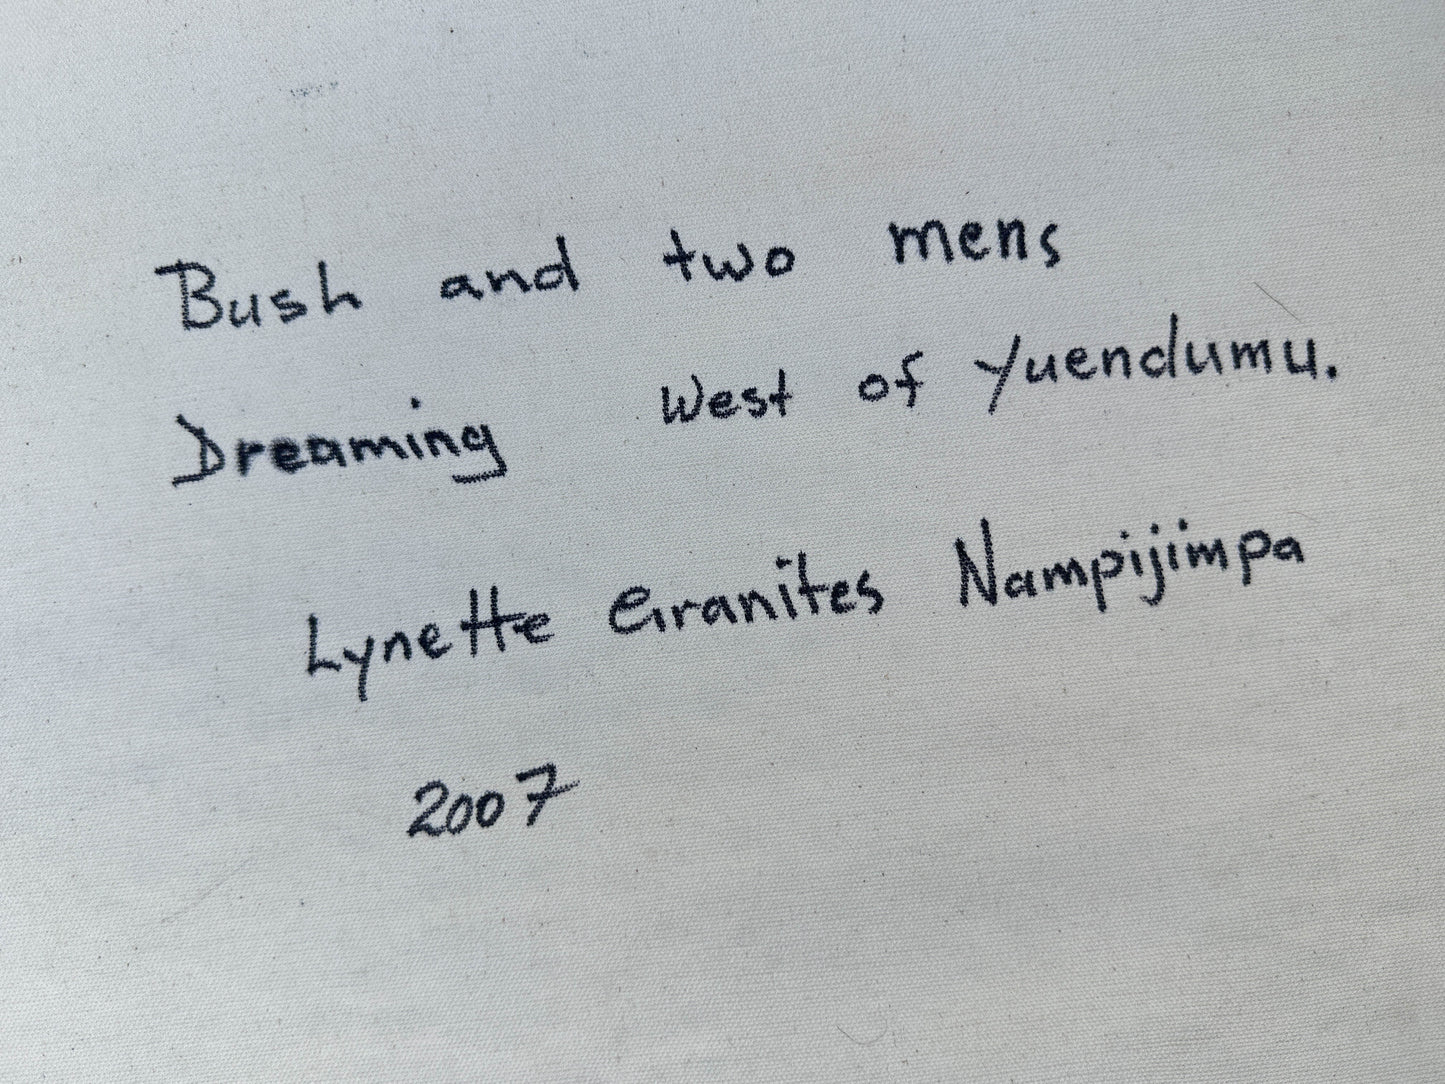 Bush and two mens
Dreaming West of Yuendumu.
Lynette Granites Nampijimpa
2007